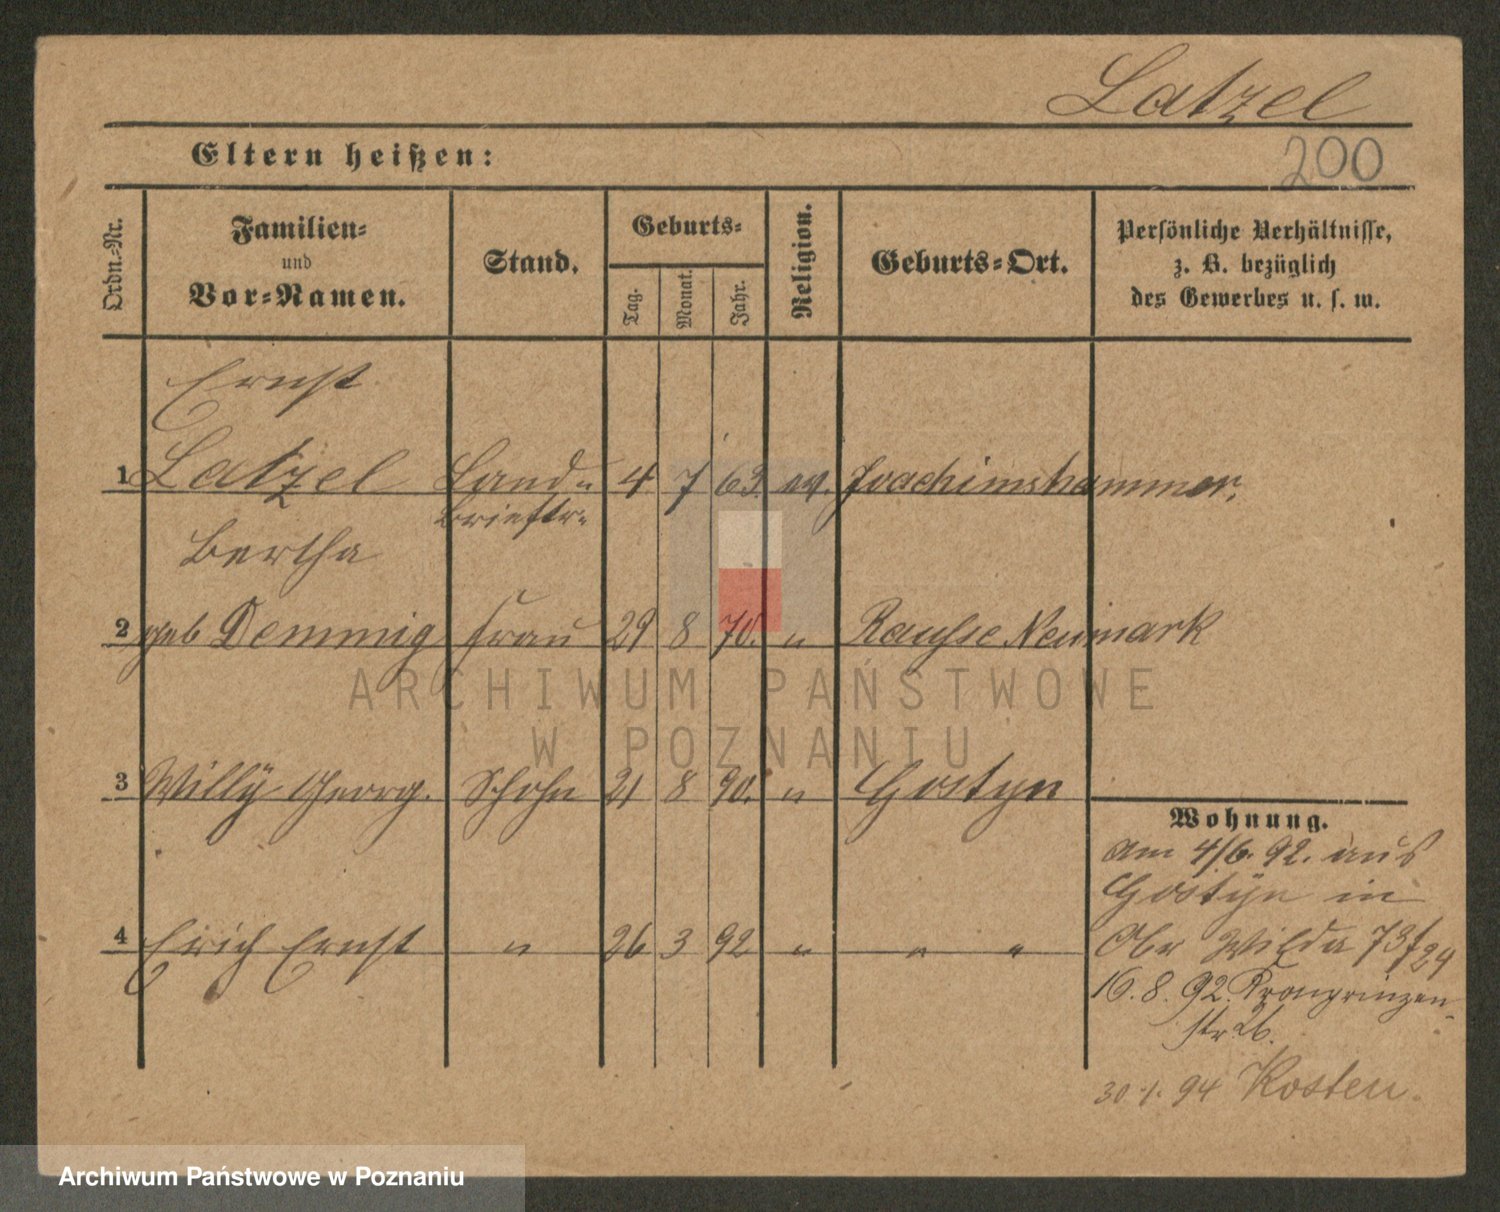 Latzel
Eltern heißen:
200
Ordn.-Nr.
Familien-
und
Vor-Namen.
Stand.
Geburts-
Tag.
Monat.
Jahr.
Religion.
Geburts-Ort.
Persönliche Verhältnisse,
z. B. bezüglich
des Gewerbes u. s. w.
Ernst
1 Latzel Land- 4 7 63. ev. Joachimshammer.
Brieftr-
Bertha
2 geb Demmig Frau 29 8 70. " Neumark
3 Willÿ Georg. Sohn 21 8 90. " Gostyn
Wohnung.
Am 4/6. 92. aus
Gostÿn in
4 Erich Ernst " 26 3 92 " " "
Obr Wilda 73/24
16. 8. 92. Kronprinzen-
str 26.
30.1. 94 Kosten.
ARCHIWUM PAŃSTWOWE
W POZNANIU
Archiwum Państwowe w Poznaniu